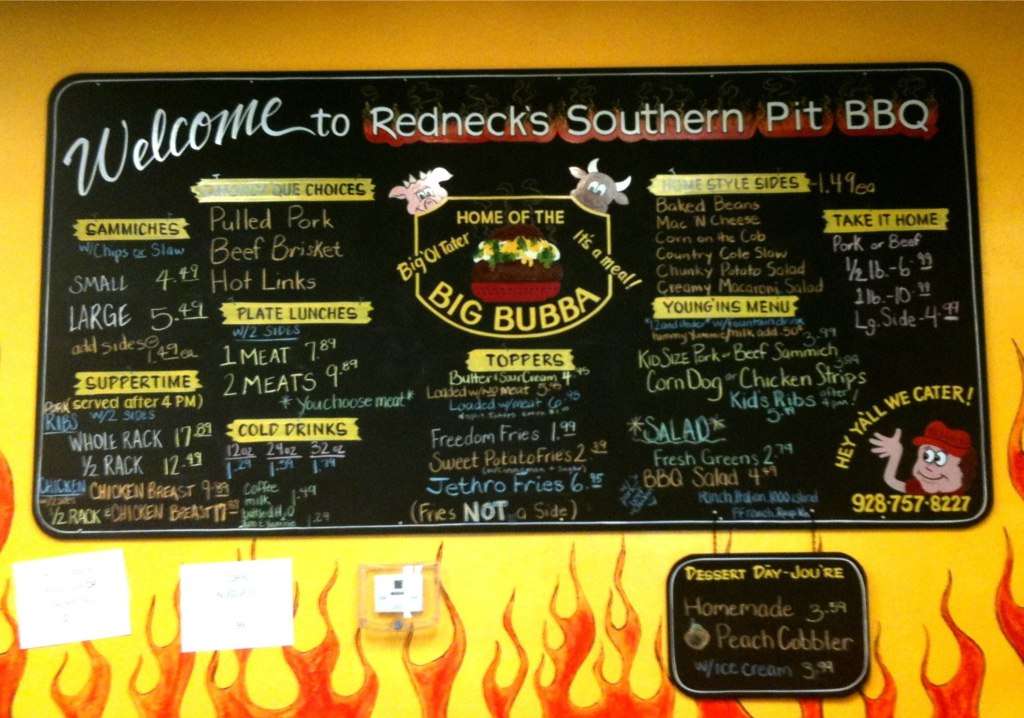 Welcome to Redneck's Southern Pit BBQ
SAMMICHES
w/Chips or Slaw
SMALL 4.49
LARGE 5.49
add sides 1.49 ea
SUPPERTIME
(served after 4 PM)
PORK RIBS w/2 SIDES
WHOLE RACK 17.89
1/2 RACK 12.49
CHICKEN
CHICKEN BREAST 9.89
1/2 RACK & CHICKEN BREAST
QUE CHOICES
Pulled Pork
Beef Brisket
Hot Links
PLATE LUNCHES
w/2 SIDES
1 MEAT 7.89
2 MEATS 9.89
*you choose meat*
COLD DRINKS
12oz 24oz 32oz
coffee
milk
1.29
HOME OF THE
Big Ol Tater
It's a meal!
BIG BUBBA
TOPPERS
Butter & Sour Cream 4.95
Loaded w/no meat 5.95
Loaded w/meat 6.95
Freedom Fries 1.99
Sweet Potato Fries 2.39
Jethro Fries 6.95
(Fries NOT a Side)
HOME STYLE SIDES -1.49 ea
Baked Beans
Mac 'N Cheese
Corn on the Cob
Country Cole Slaw
Chunky Potato Salad
Creamy Macaroni Salad
YOUNG'INS MENU
3.99
Kid Size Pork or Beef Sammich
Corn Dog or Chicken Strips
Kid's Ribs after 4pm!
*SALAD*
Fresh Greens 2.79
BBQ Salad 4.89
Ranch Italian 1000 island
French
TAKE IT HOME
Pork or Beef
1/2 lb.-6.99
1 lb.-10.99
Lg. Side-4.99
HEY YA'LL WE CATER!
928-757-8227
DESSERT DAY-JOU'RE
Homemade 3.59
Peach Cobbler
w/ice cream 3.99